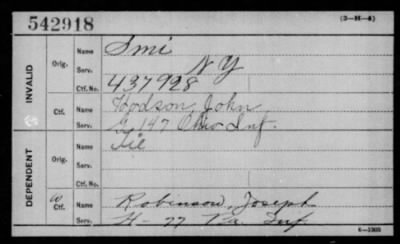 542918
(3-H-4)
INVALID
Orig.
Name
Smi
Serv.
NY
Ctf. No.
437928
Ctf.
Name
Hodson, John
Serv.
G 147 Ohio Inf.
DEPENDENT
Orig.
Name
Serv.
Ctf. No.
W
Ctf.
Name
Robinson, Joseph
Serv.
H-77 Pa. Inf.